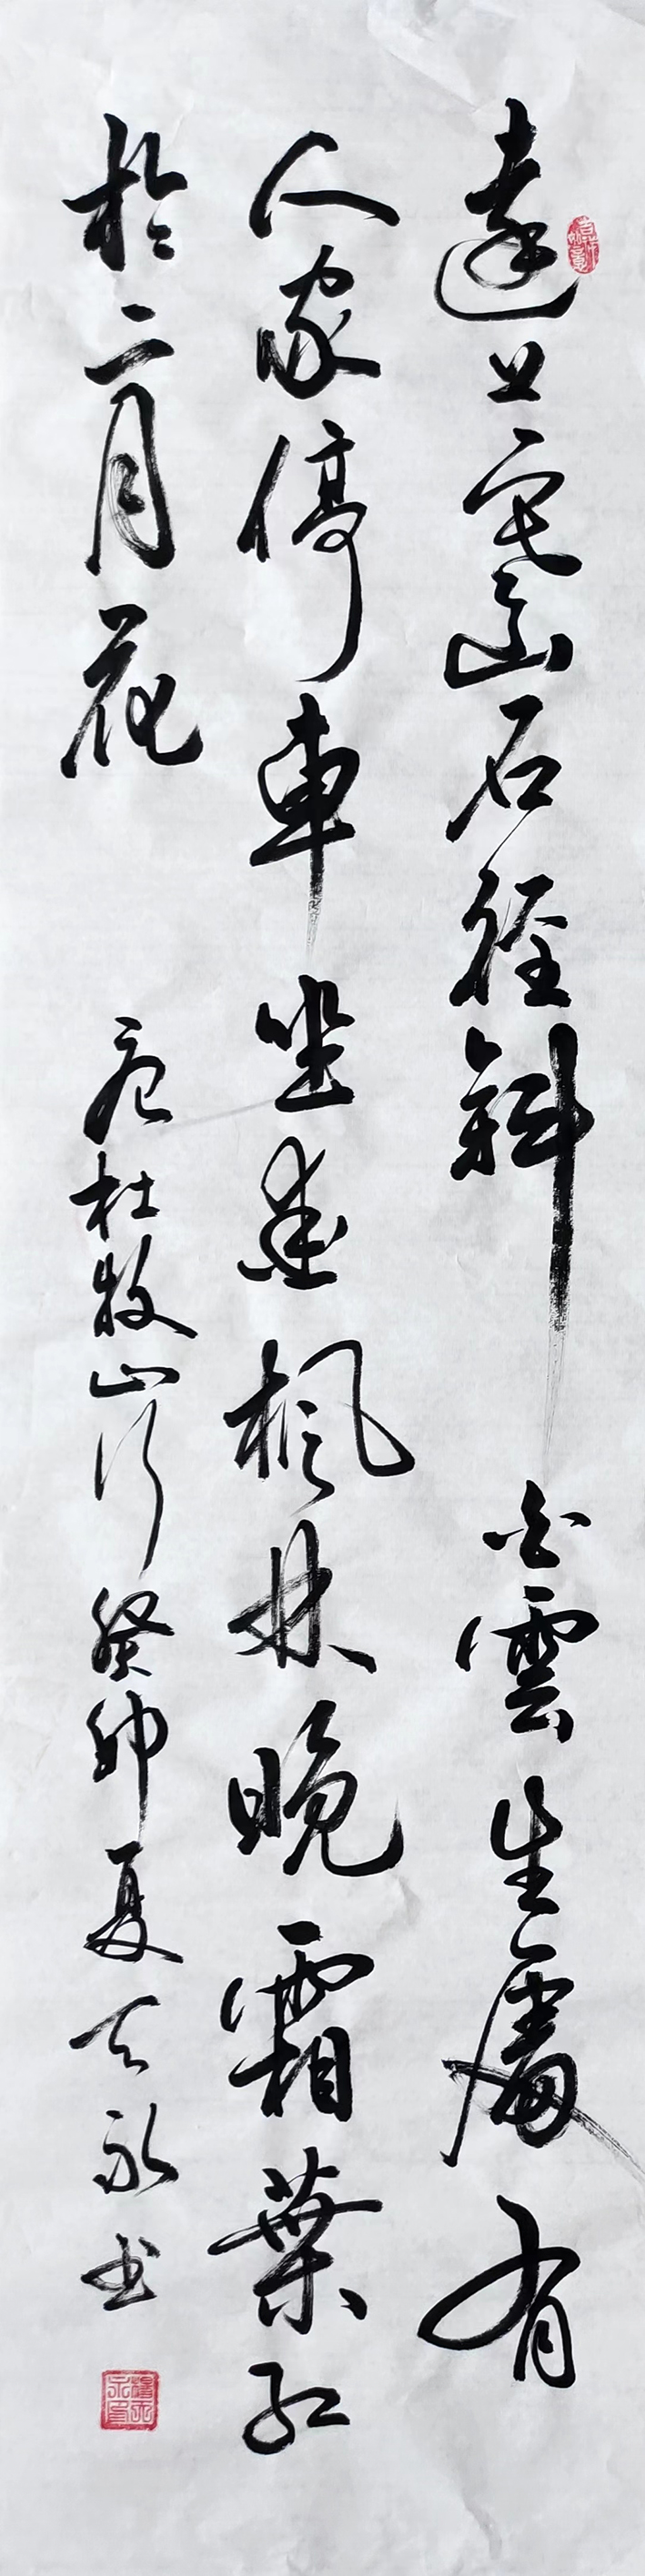 遠上寒山石徑斜白雲生處有
人家停車坐愛楓林晚霜葉紅
於二月花
唐杜牧山行癸卯夏天永书